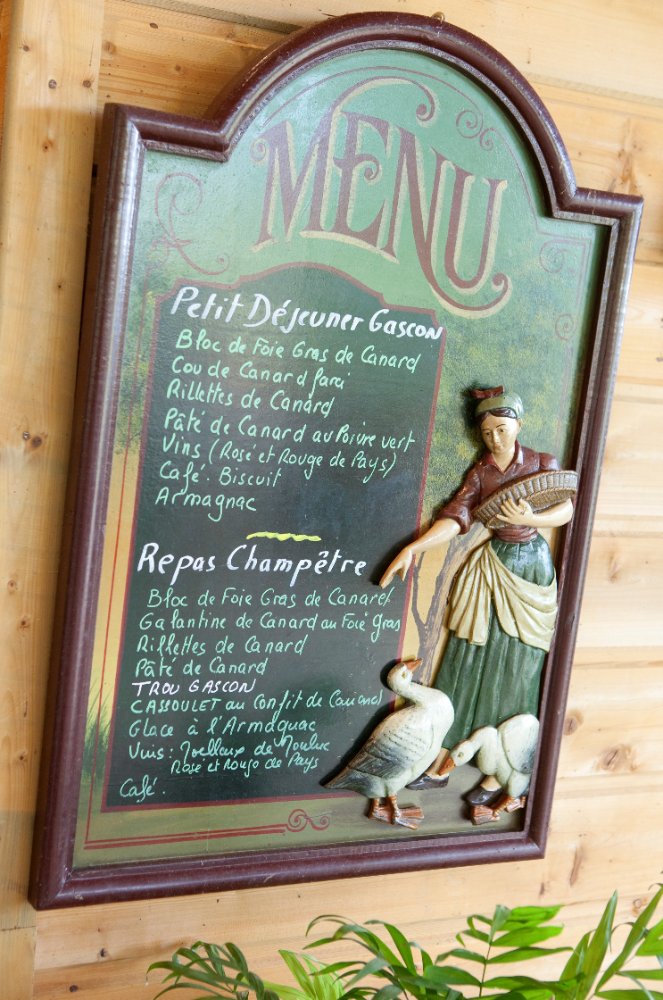 MENU
Petit Déjeuner Gascon
Bloc de Foie Gras de Canard
Cou de Canard farci
Rillettes de Canard
Pâté de Canard au Poivre vert
Vins (Rosé et Rouge de Pays)
Café. Biscuit
Armagnac
Repas Champêtre
Bloc de Foie Gras de Canard
Galantine de Canard au Foie gras
Rillettes de Canard
Pâté de Canard
TROU GASCON
CASSOULET au Confit de Canard
Glace à l'Armagnac
Vins: Moelleux de Monluc
Rosé et Rouge de Pays
Café.